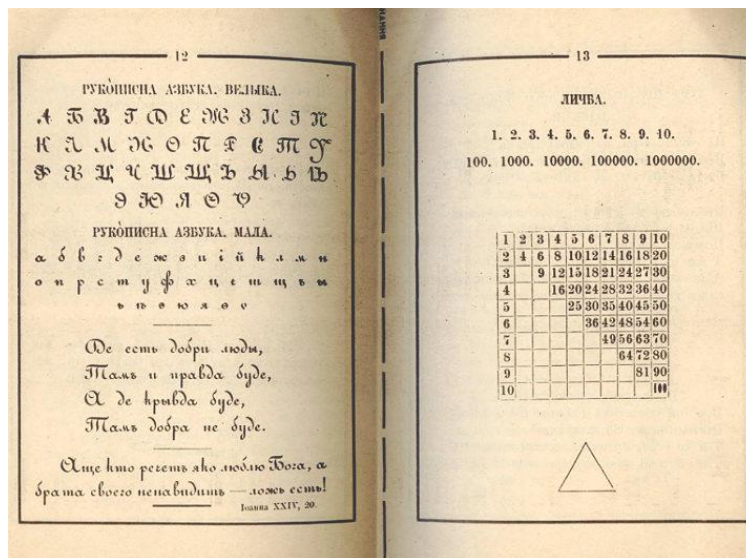 12
РУКО̀ПИСНА АЗБУКА. ВЕЛЫКА.
А Б В Г Д Е Ж З И І Й
К Л М Н О П Р С Т У
Ф Х Ц Ч Ш Щ Ъ Ы Ь Ѣ
Э Ю Я Ѳ Ѵ
РУКО̀ПИСНА АЗБУКА. МАЛА.
а б в г д е ж з и і й к л м н
о п р с т у ф х ц ч ш щ ъ ы
ь ѣ э ю я ѳ ѵ
Де есть добри люды,
Тамъ и правда буде,
А де крывда буде,
Тамъ добра не буде.
Аще кто речетъ яко люблю Бога, а
брата своего ненавидить — ложь есть!
Іоанна XXIV, 20.
13
ЛИЧБА.
1. 2. 3. 4. 5. 6. 7. 8. 9. 10.
100. 1000. 10000. 100000. 1000000.
1 2 3 4 5 6 7 8 9 10
2 4 6 8 10 12 14 16 18 20
3 9 12 15 18 21 24 27 30
4 16 20 24 28 32 36 40
5 25 30 35 40 45 50
6 36 42 48 54 60
7 49 56 63 70
8 64 72 80
9 81 90
10 100